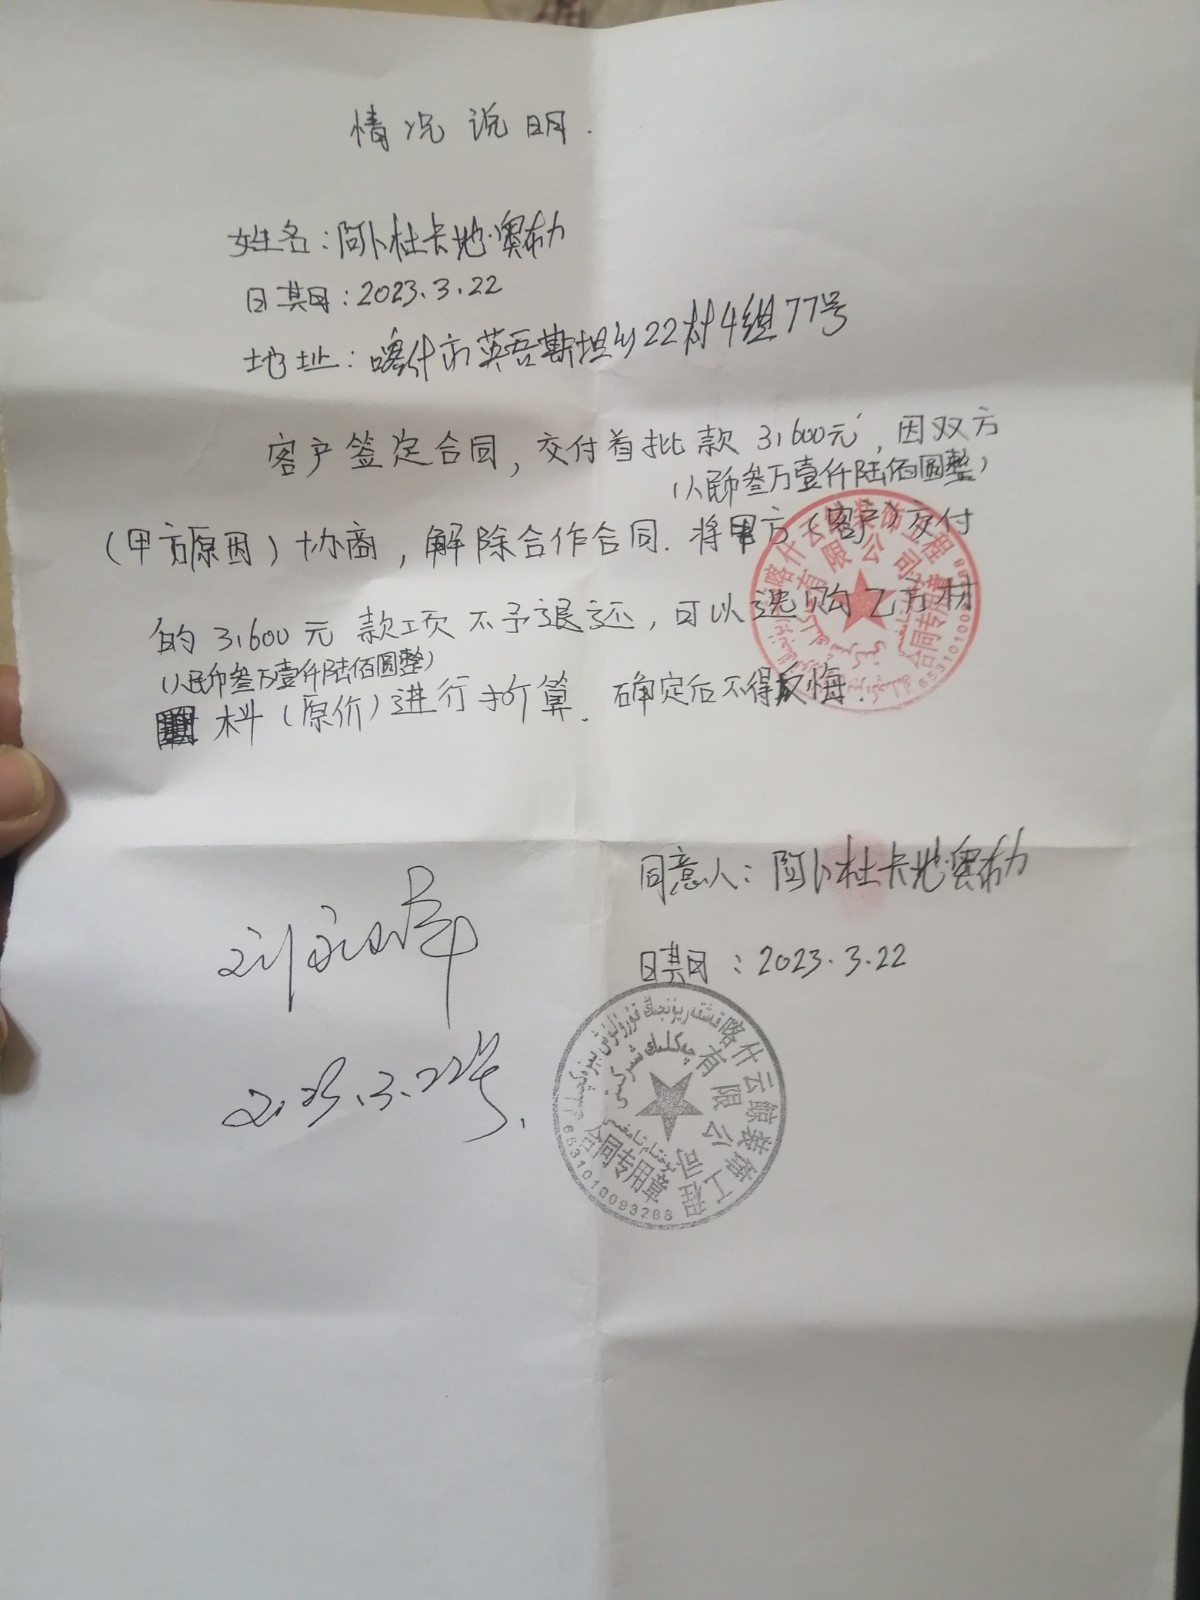 情况说明.
姓名：阿卜杜卡地·奥布力
日期：2023.3.22
地址：喀什市英吾斯坦乡22村4组77号
客户签定合同，交付首批款31600元，因双方
（人民币叁万壹仟陆佰圆整）
（甲方原因）协商，解除合作合同.将甲方（客户）交付
的31600元款项不予退还，可以选购乙方材
（人民币叁万壹仟陆佰圆整）
料（原价）进行折算.确定后不得反悔.
喀什云鲸装饰工程
有限公司
合同专用章
同意人：阿卜杜卡地·奥布力
日期：2023.3.22
2023.3.22号.
喀什云鲸装饰工程
有限公司
合同专用章
6531010093288